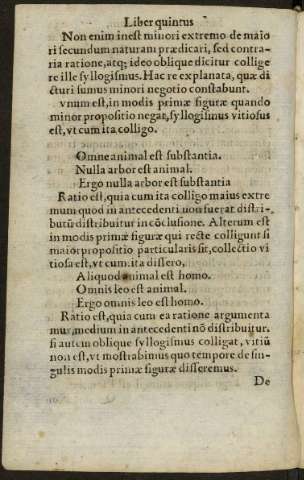 Liber quintus
Non enim inest minori extremo de maio
ri secundum naturam prædicari, sed contra-
ria ratione, atq; ideo oblique dicitur collige
re ille syllogismus. Hac re explanata, quæ di
cturi sumus minori negotio constabunt.
vnum est, in modis primæ figuræ quando
minor propositio negat, syllogismus vitiosus
est, vt cum ita colligo.
Omne animal est substantia.
Nulla arbor est animal.
Ergo nulla arbor est substantia
Ratio est, quia cum ita colligo maius extre
mum quod in antecedenti non fuerat distri-
butũ distribuitur in cõclusione. Alterum est
in modis primæ figuræ qui recte colligunt si
maior propositio particularis sit, collectio vi
tiosa est, vt cum ita dissero,
Aliquod animal est homo.
Omnis leo est animal.
Ergo omnis leo est homo.
Ratio est, quia cum ea ratione argumenta
mur, medium in antecedenti nõ distribuitur.
si autem oblique syllogismus colligat, vitiũ
non est, vt mostrabimus quo tempore de sin-
gulis modis primæ figuræ disseremus.
De